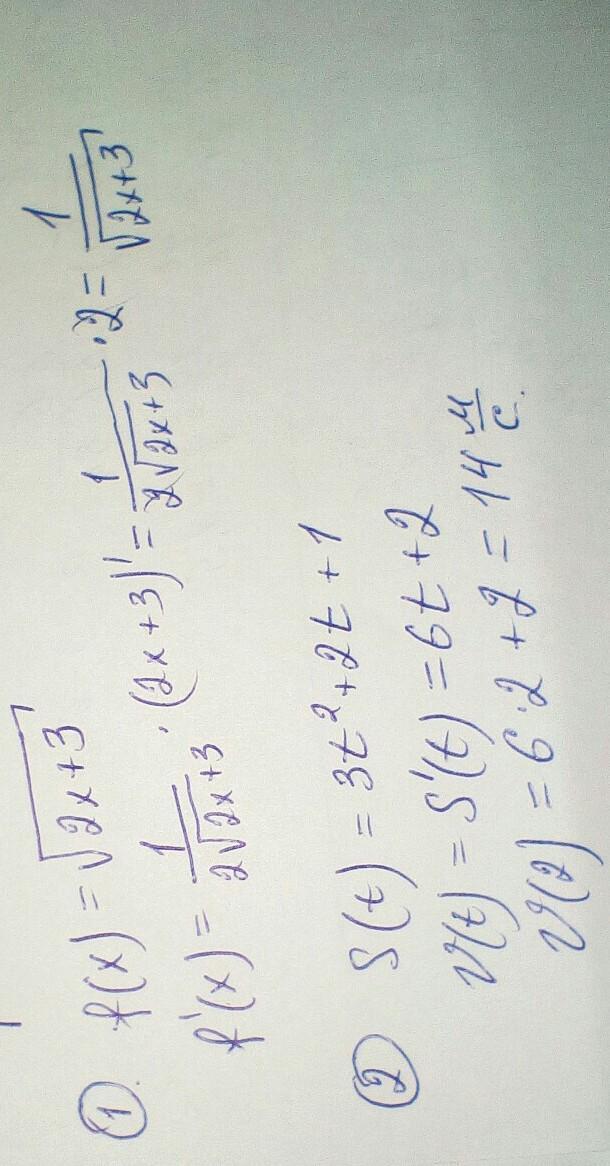 ① f(x) = √(2x+3)
f'(x) = 1/(2√(2x+3)) · (2x+3)' = 1/(2√(2x+3)) · 2 = 1/√(2x+3)
② S(t) = 3t²+2t+1
V(t) = S'(t) = 6t+2
V(2) = 6·2+2 = 14 м/с.